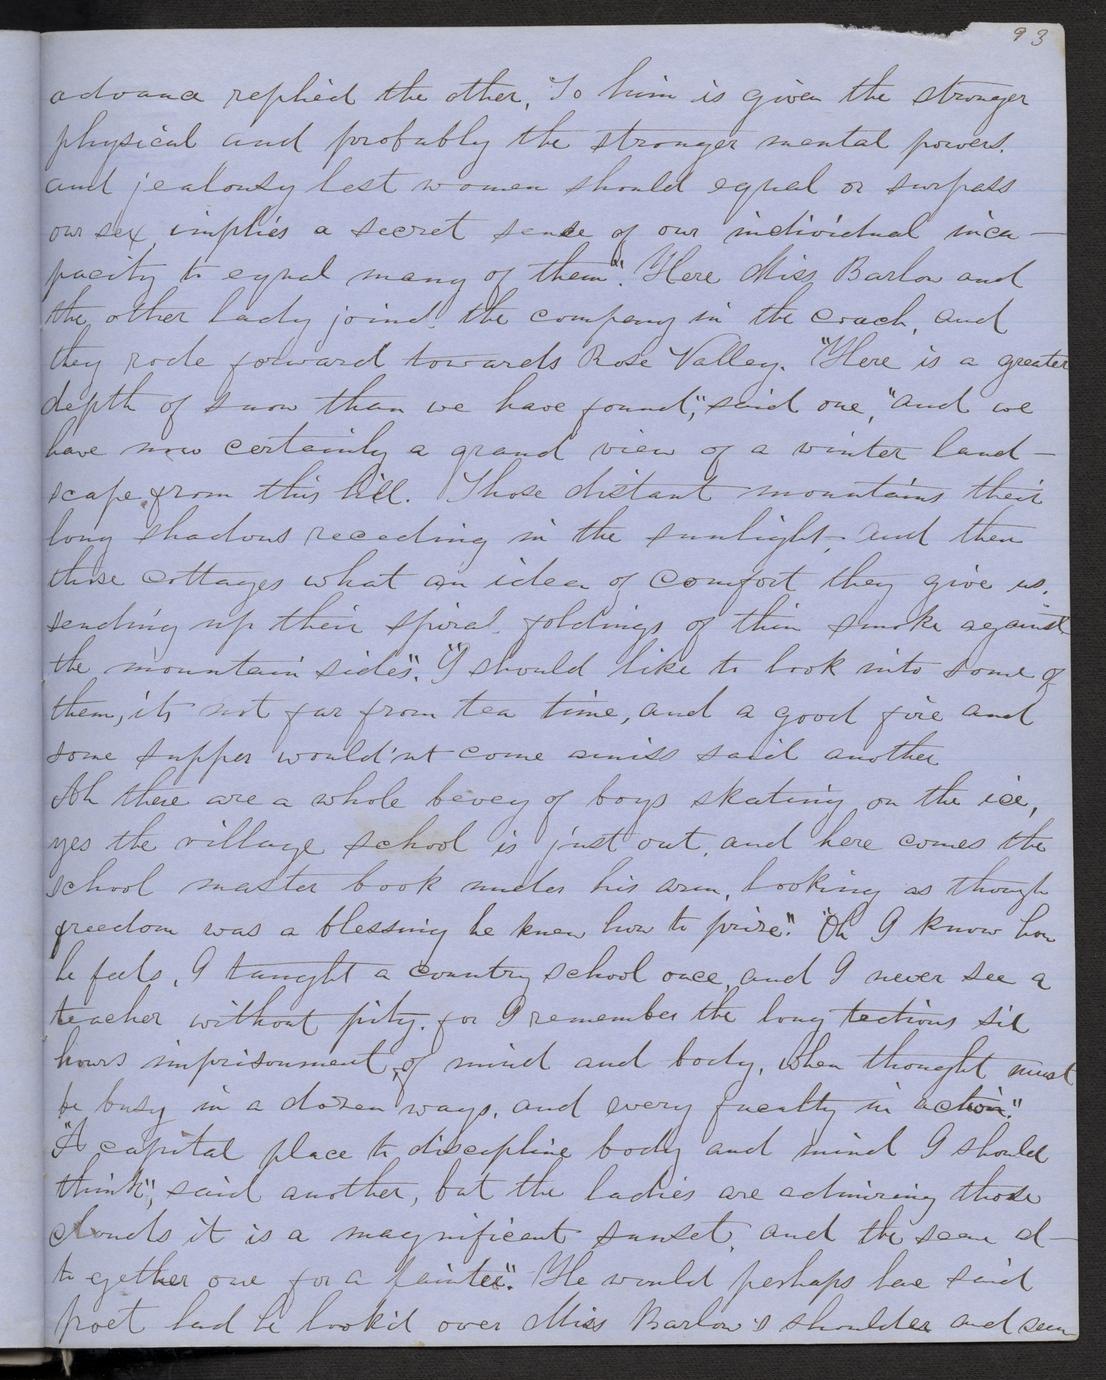 93
advance replied the other, To him is given the stronger
physical and probably the stronger mental powers.
and jealousy lest women should equal or surpass
our sex, implies a secret sense of our individual inca-
pacity to equal many of them". Here Miss Barlow and
the other lady joind the company in the coach, and
they rode forward towards Rose Valley. "Here is a greater
depth of snow than we have found", said one, "and we
have now certainly a grand view of a winter land-
scape from this hill. Those distant mountains their
long shadows receeding in the sunlight, and then
those cottages what an idea of comfort they give us.
sending up their spiral foldings of thin smoke against
the mountain sides". "I should like to look into some of
them, its not far from tea time, and a good fire and
some supper would'nt come amiss said another
Ah there are a whole bevey of boys skating on the ice,
yes the village school is just out, and here comes the
school master book under his arm, looking as though
freedom was a blessing he knew how to prize". "Oh I know how
he feels, I taught a country school once, and I never see a
teacher without pity. for I remember the long tectious six
hours imprisonment, of mind and body, when thought must
be busy in a dozen ways, and every faculty in action."
"A capital place to discepline body and mind I should
think", said another, but the ladies are admiring those
clouds it is a magnificent sunset, and the scene al-
to gether one for a painter". He would perhaps have said
poet had he look'd over Miss Barlow's shoulder and seen